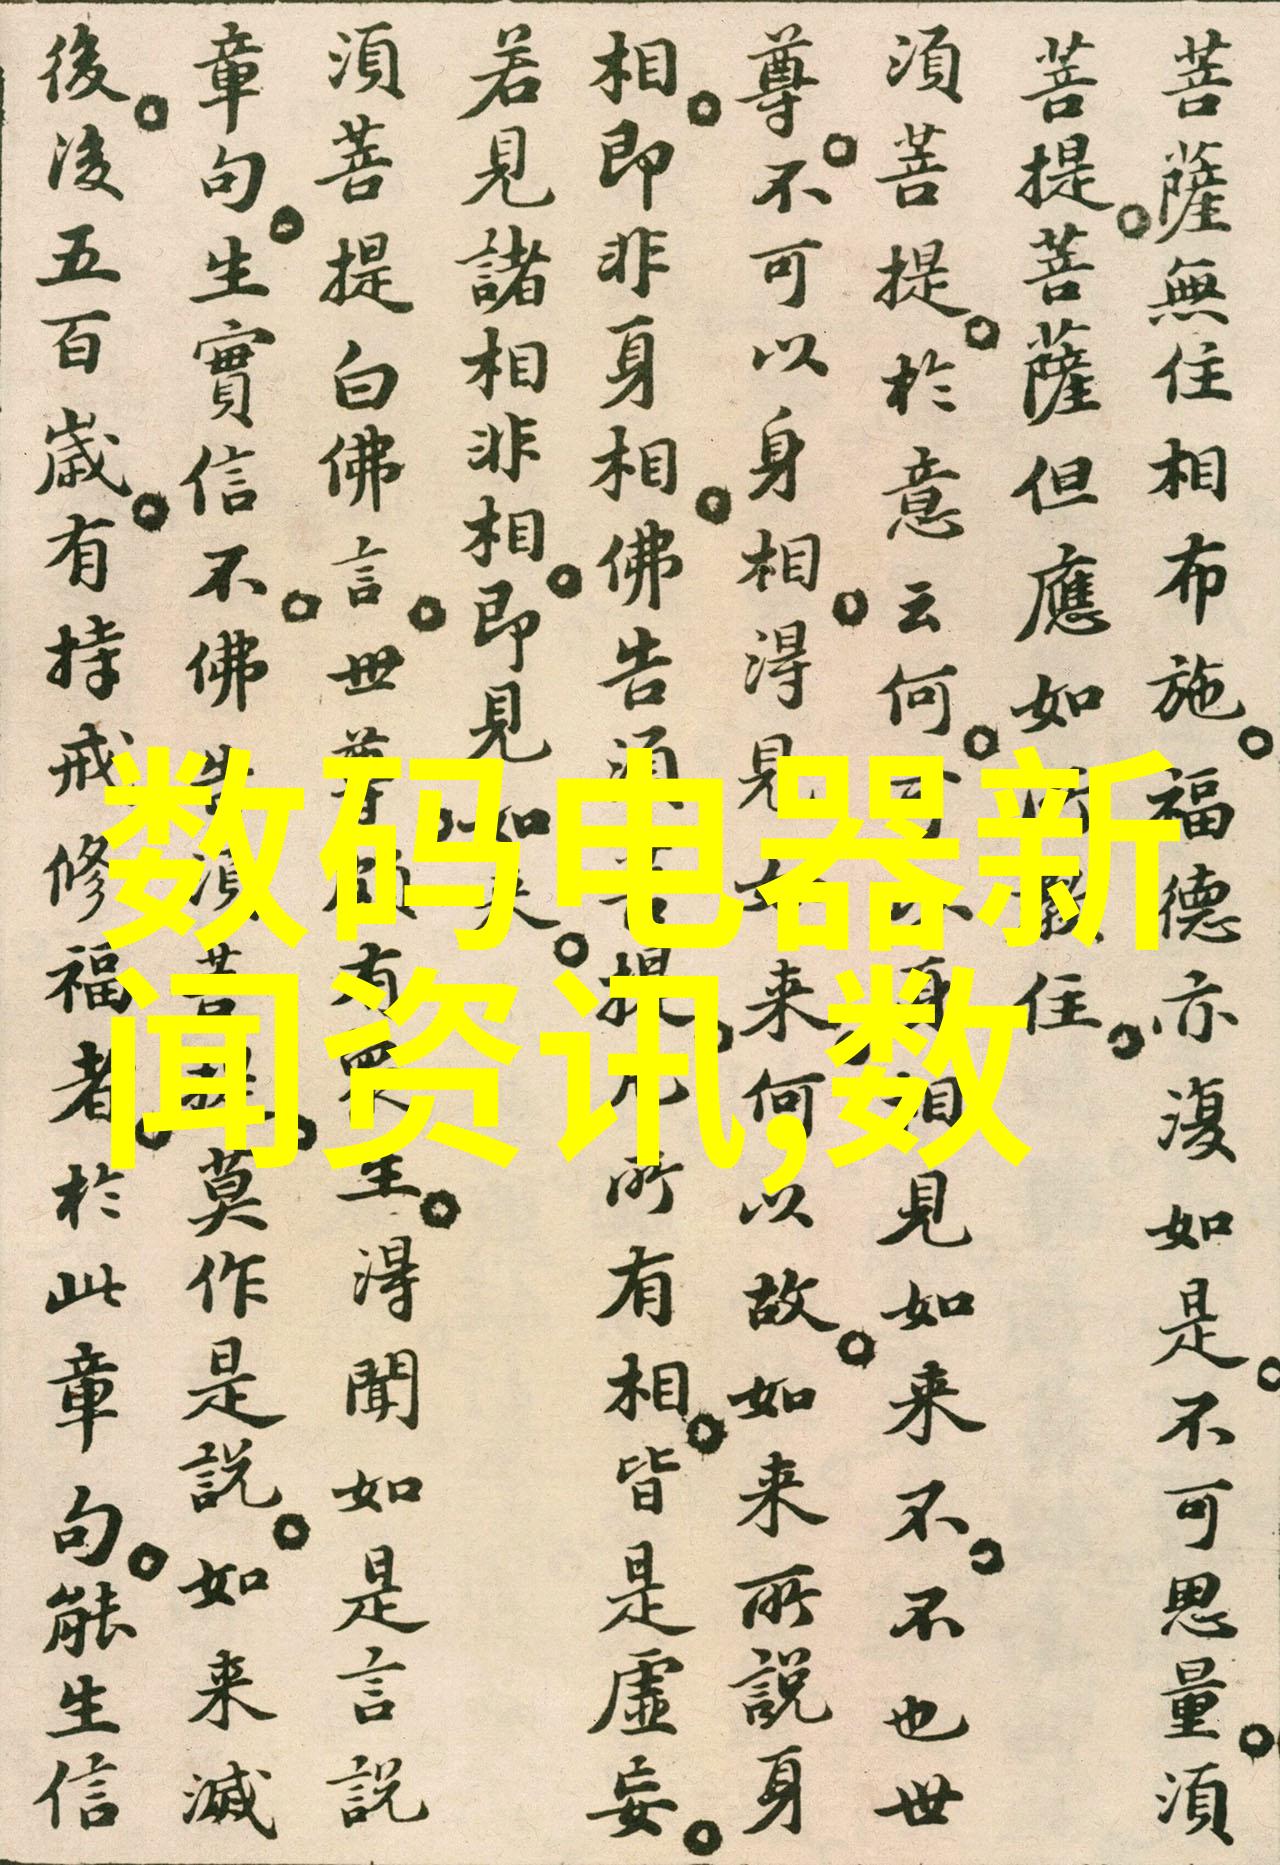 菩薩無住相布施福德亦復如是不可思量須
菩提菩薩但應如所教住
須菩提於意云何可以身相見如来不不也世
尊不可以身相得見如来何以故如来所說身
相即非身相佛告須菩提凡所有相皆是虛妄
若見諸相非相即見如来
須菩提白佛言世尊頗有眾生得聞如是言說
章句生實信不佛告須菩提莫作是說如来滅
後後五百歲有持戒修福者於此章句能生信
数码电器新
闻资讯,数